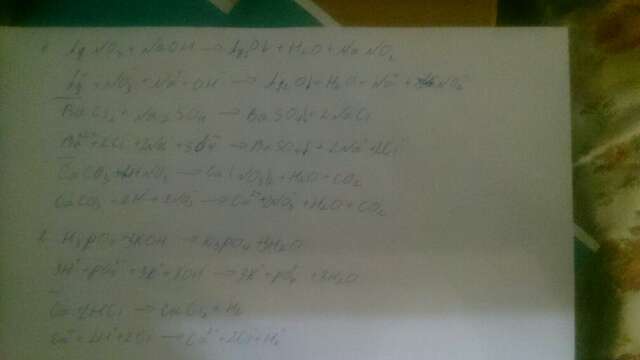 1. AgNO3 + NaOH → Ag2O↓ + H2O + NaNO3
Ag+ + NO3- + Na+ + OH- → Ag2O↓ + H2O + Na+ + NO3-
BaCl2 + Na2SO4 → BaSO4↓ + 2NaCl
Ba2+ + 2Cl- + 2Na+ + SO4 → BaSO4↓ + 2Na+ + 2Cl-
CaCO3 + HNO3 → Ca(NO3)2 + H2O + CO2
CaCO3 + 2H+ + 2NO3- → Ca2+ + 2NO3- + H2O + CO2
2. H3PO4 + 3KOH → K3PO4 + 3H2O
3H+ + PO4 + 3K+ + 3OH- → 3K+ + PO4 + 3H2O
Ca + 2HCl → CaCl2 + H2